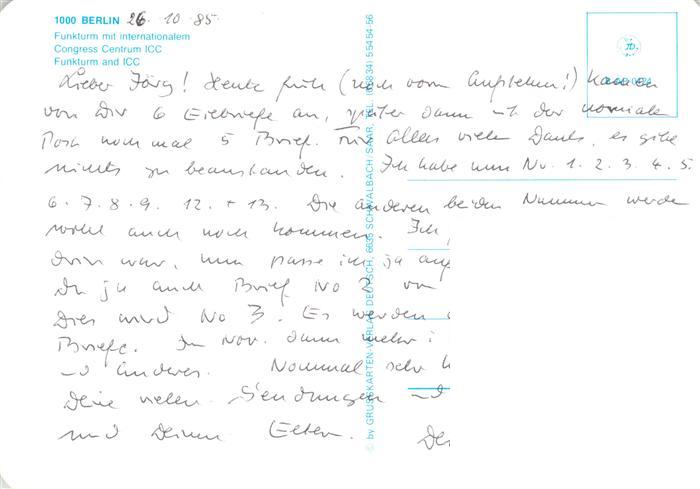 1000 BERLIN 26.10.85
Funkturm mit internationalem
Congress Centrum ICC
Funkturm and ICC
Lieber Jörg! Heute früh (noch vorm Aufstehen!) kamen
von Dir 6 Eilbriefe an, später dann mit der normalen
Post noch mal 5 Brief. Für alles vielen Dank, es gibt
nichts zu beanstanden. Ich habe nun No. 1. 2. 3. 4. 5.
6. 7. 8. 9. 12. + 13. Die anderen beiden Nummern werden
wohl auch noch kommen. Ich
drin war, nun passe ich ja auf
Du ja auch Brief No 2 von
Dies wird No 3. Es werden
Briefe. Im Nov. dann mehr
und anderes. Nochmal sehr
Deine vielen Sendungen und
und Deinen Eltern. Dei
© by GRUSSKARTEN-VERLAG DEUTSCH, 6635 SCHWALBACH/SAAR, TEL. (06834) 55454-56